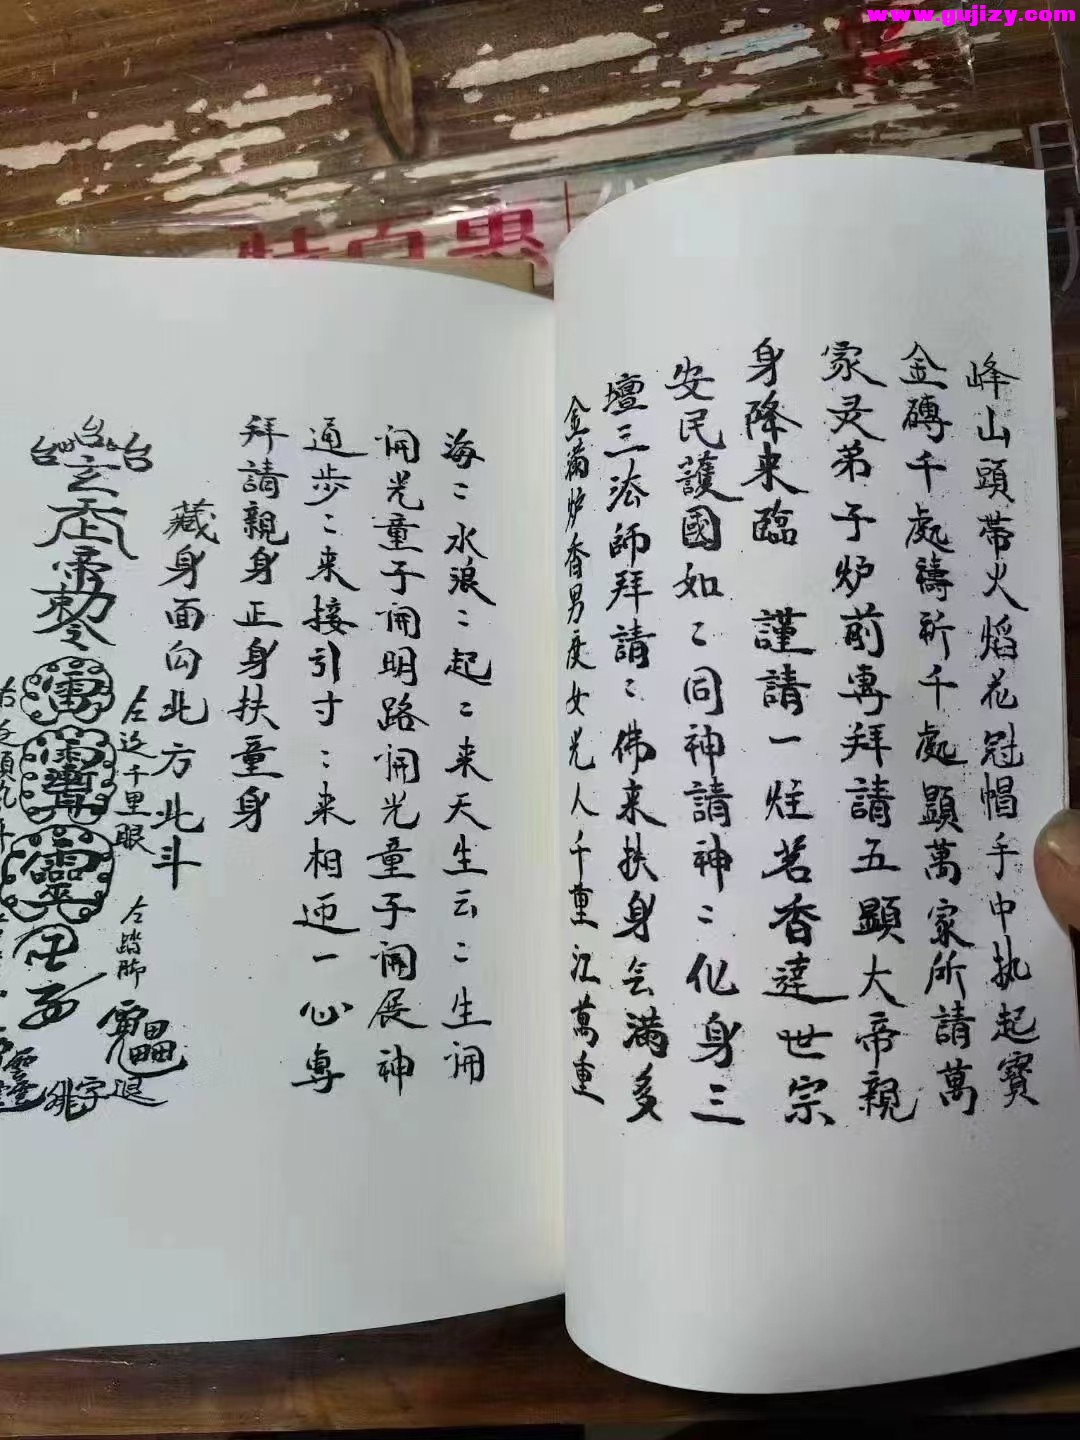 www.gujizy.com
特百惠
峰山頭帶火焰花冠帽手中执起寶
金磚千處禱祈千處顯萬家所請萬
家灵弟子炉前專拜請五顯大帝親
身降来臨　謹請一炷茗香達世宗
安民護國如〻同神請神〻化身三
壇三法師拜請〻佛来扶身会满多
金满炉香男度女光人千重江萬重
海〻水浪〻起〻来天生云〻生開
開光童子開明路開光童子開展神
通步〻来接引寸〻来相迎一心專
拜請親身正身扶童身
藏身面向北方北斗
台台台
玄天上帝勅令
雷
左边千里眼
左踏脚
退字